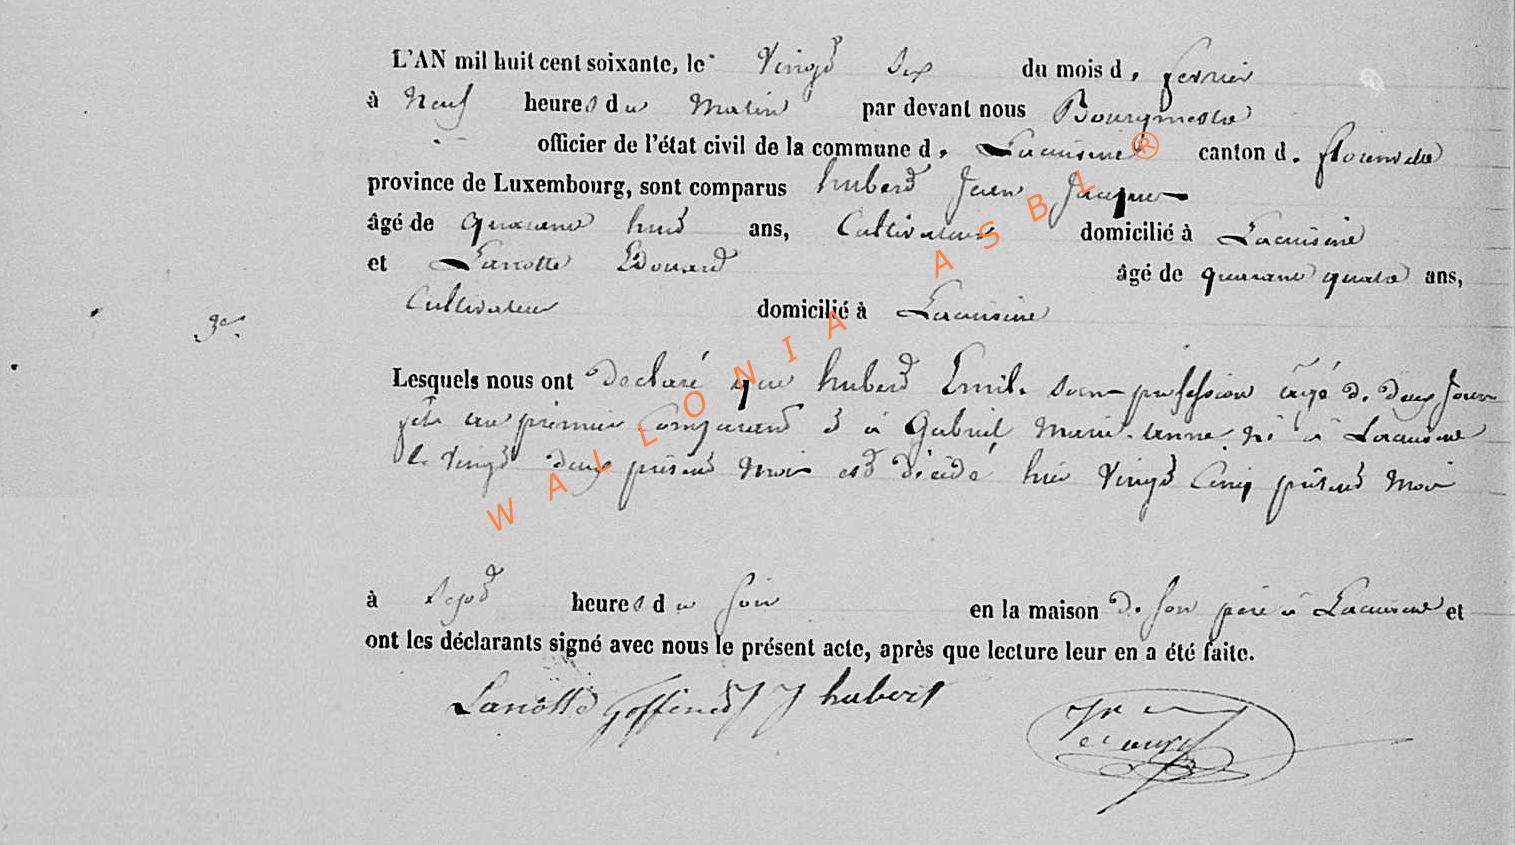 L'AN mil huit cent soixante, le vingt six du mois d. fevrier
à Neuf heures du Matin par devant nous Bourgmestre
officier de l'état civil de la commune d. Lacuisine canton d. florenville
province de Luxembourg, sont comparus hubert Jean Jacques
âgé de quarante huit ans, Cultivateur domicilié à Lacuisine
et Lanotte Edouard âgé de quarante quatre ans,
Cultivateur domicilié à Lacuisine
Lesquels nous ont declaré que hubert Emile sans profession âgé de deux Jours
fils au premier Comparant et à Gabriel Marie-anne né à Lacuisine
le vingt deux présent Mois est décédé hier vingt Cinq présent Mois
à sept heures du soir en la maison de son père à Lacuisine et
ont les déclarants signé avec nous le présent acte, après que lecture leur en a été faite.
Lanotte Goffinet J J hubert
WALLONIA ASBL ®